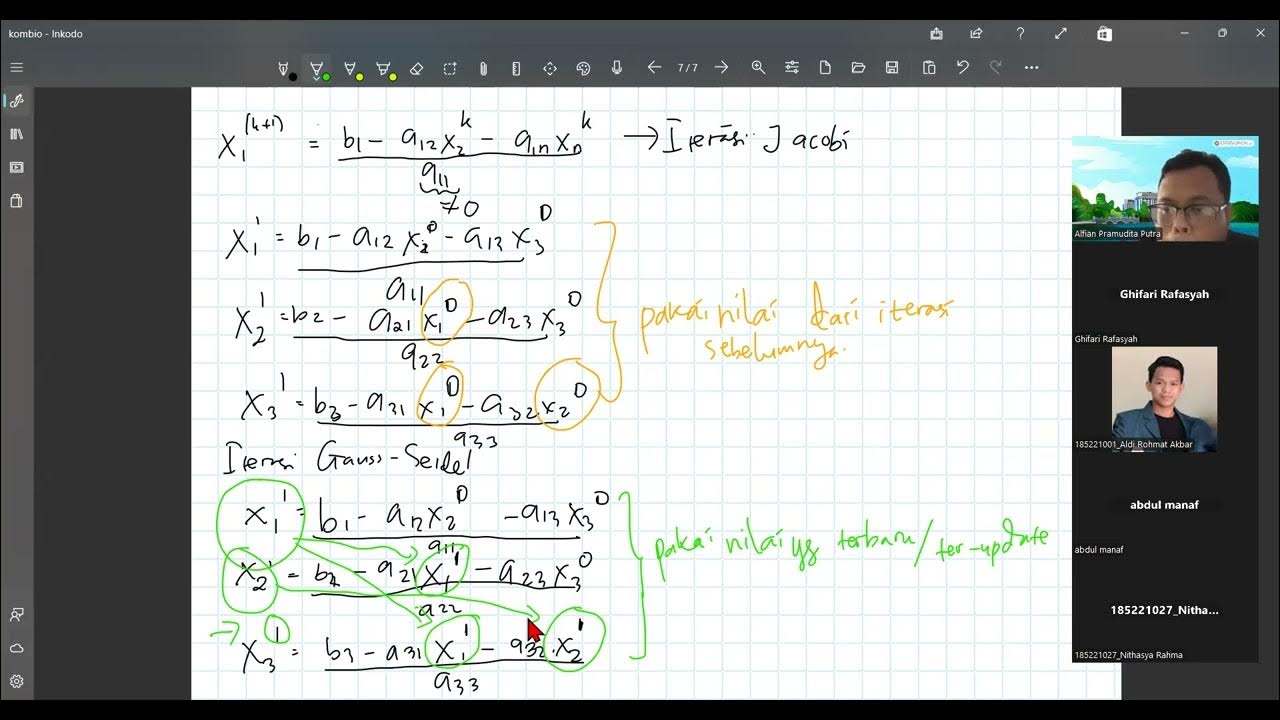 kombio - Inkodo
7/7
x₁^(k+1) = (b₁ - a₁₂x₂^k - a₁ₙxₙ^k) / a₁₁ → Iterasi Jacobi
≠0
x₁¹ = (b₁ - a₁₂x₂⁰ - a₁₃x₃⁰) / a₁₁
x₂¹ = (b₂ - a₂₁x₁⁰ - a₂₃x₃⁰) / a₂₂
x₃¹ = (b₃ - a₃₁x₁⁰ - a₃₂.x₂⁰) / a₃₃
pakai nilai dari iterasi
sebelumnya.
Iterasi Gauss-Seidel
x₁¹ = (b₁ - a₁₂x₂⁰ - a₁₃x₃⁰) / a₁₁
x₂¹ = (b₂ - a₂₁x₁¹ - a₂₃x₃⁰) / a₂₂
→ x₃¹ = (b₃ - a₃₁x₁¹ - a₃₂.x₂¹) / a₃₃
pakai nilai yg terbaru/ter-update
Alfian Pramudita Putra
Ghifari Rafasyah
Ghifari Rafasyah
185221001_Aldi Rohmat Akbar
abdul manaf
abdul manaf
185221027_Nitha...
185221027_Nithasya Rahma